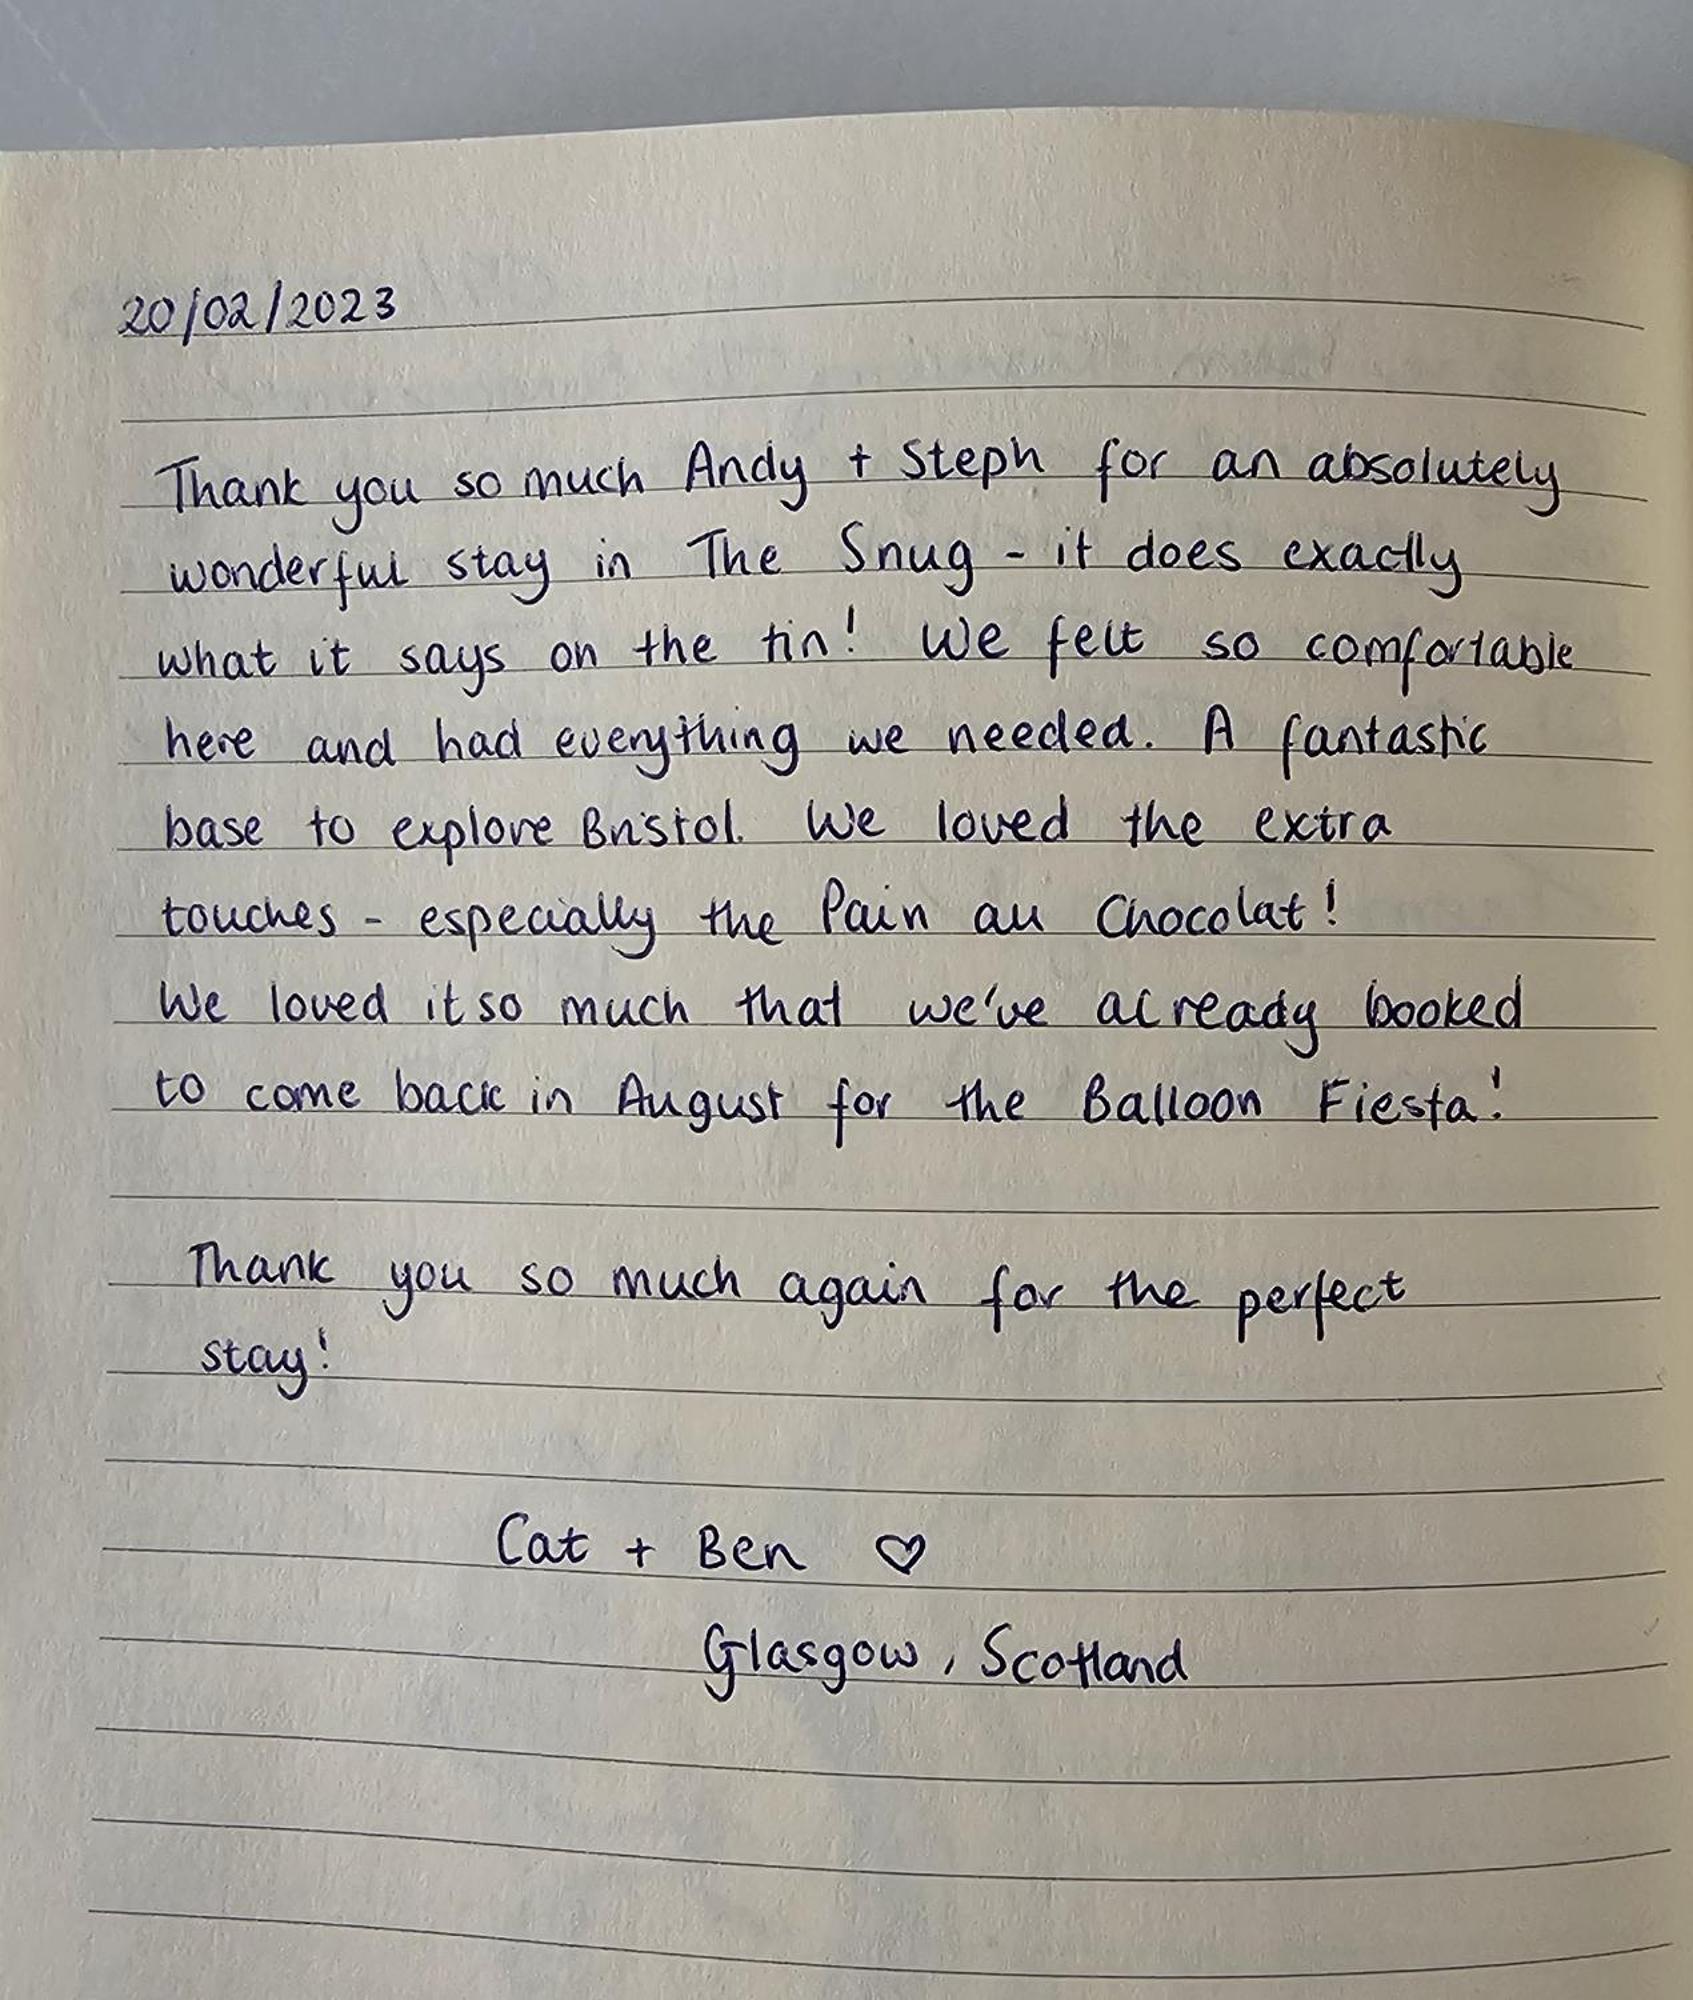 20/02/2023
Thank you so much Andy + Steph for an absolutely
wonderful stay in The Snug - it does exactly
what it says on the tin! We felt so comfortable
here and had everything we needed. A fantastic
base to explore Bristol. We loved the extra
touches - especially the Pain au Chocolat!
We loved it so much that we've already booked
to come back in August for the Balloon Fiesta!
Thank you so much again for the perfect
stay!
Cat + Ben ♡
Glasgow, Scotland